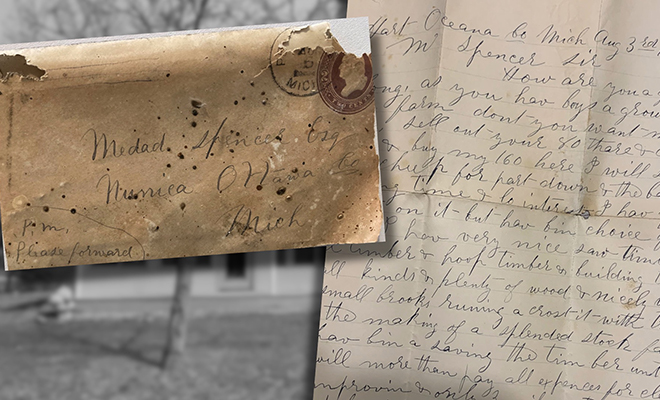 MICH
Medad Spencer Esq
Nunica Ottawa Co
Mich
P.M.
Please forward
Hart Oceana Co Mich Aug 3rd
Mr Spencer Sir
How are you g
as you hav boys a grow
farm dont you want m
sell out your 80 thare &
& buy my 160 here I will s
cheap for part down & the ba
time & to intrest I hav
on it - but hav bin choice
I hav very nice saw tim
timber & hoop timber & building
all kinds & plenty of wood & nicely
small brook runing a crost it with
the making of a splended stock fa
hav bin a saving the timber unt
will more than pay all expences for cl
improvin &